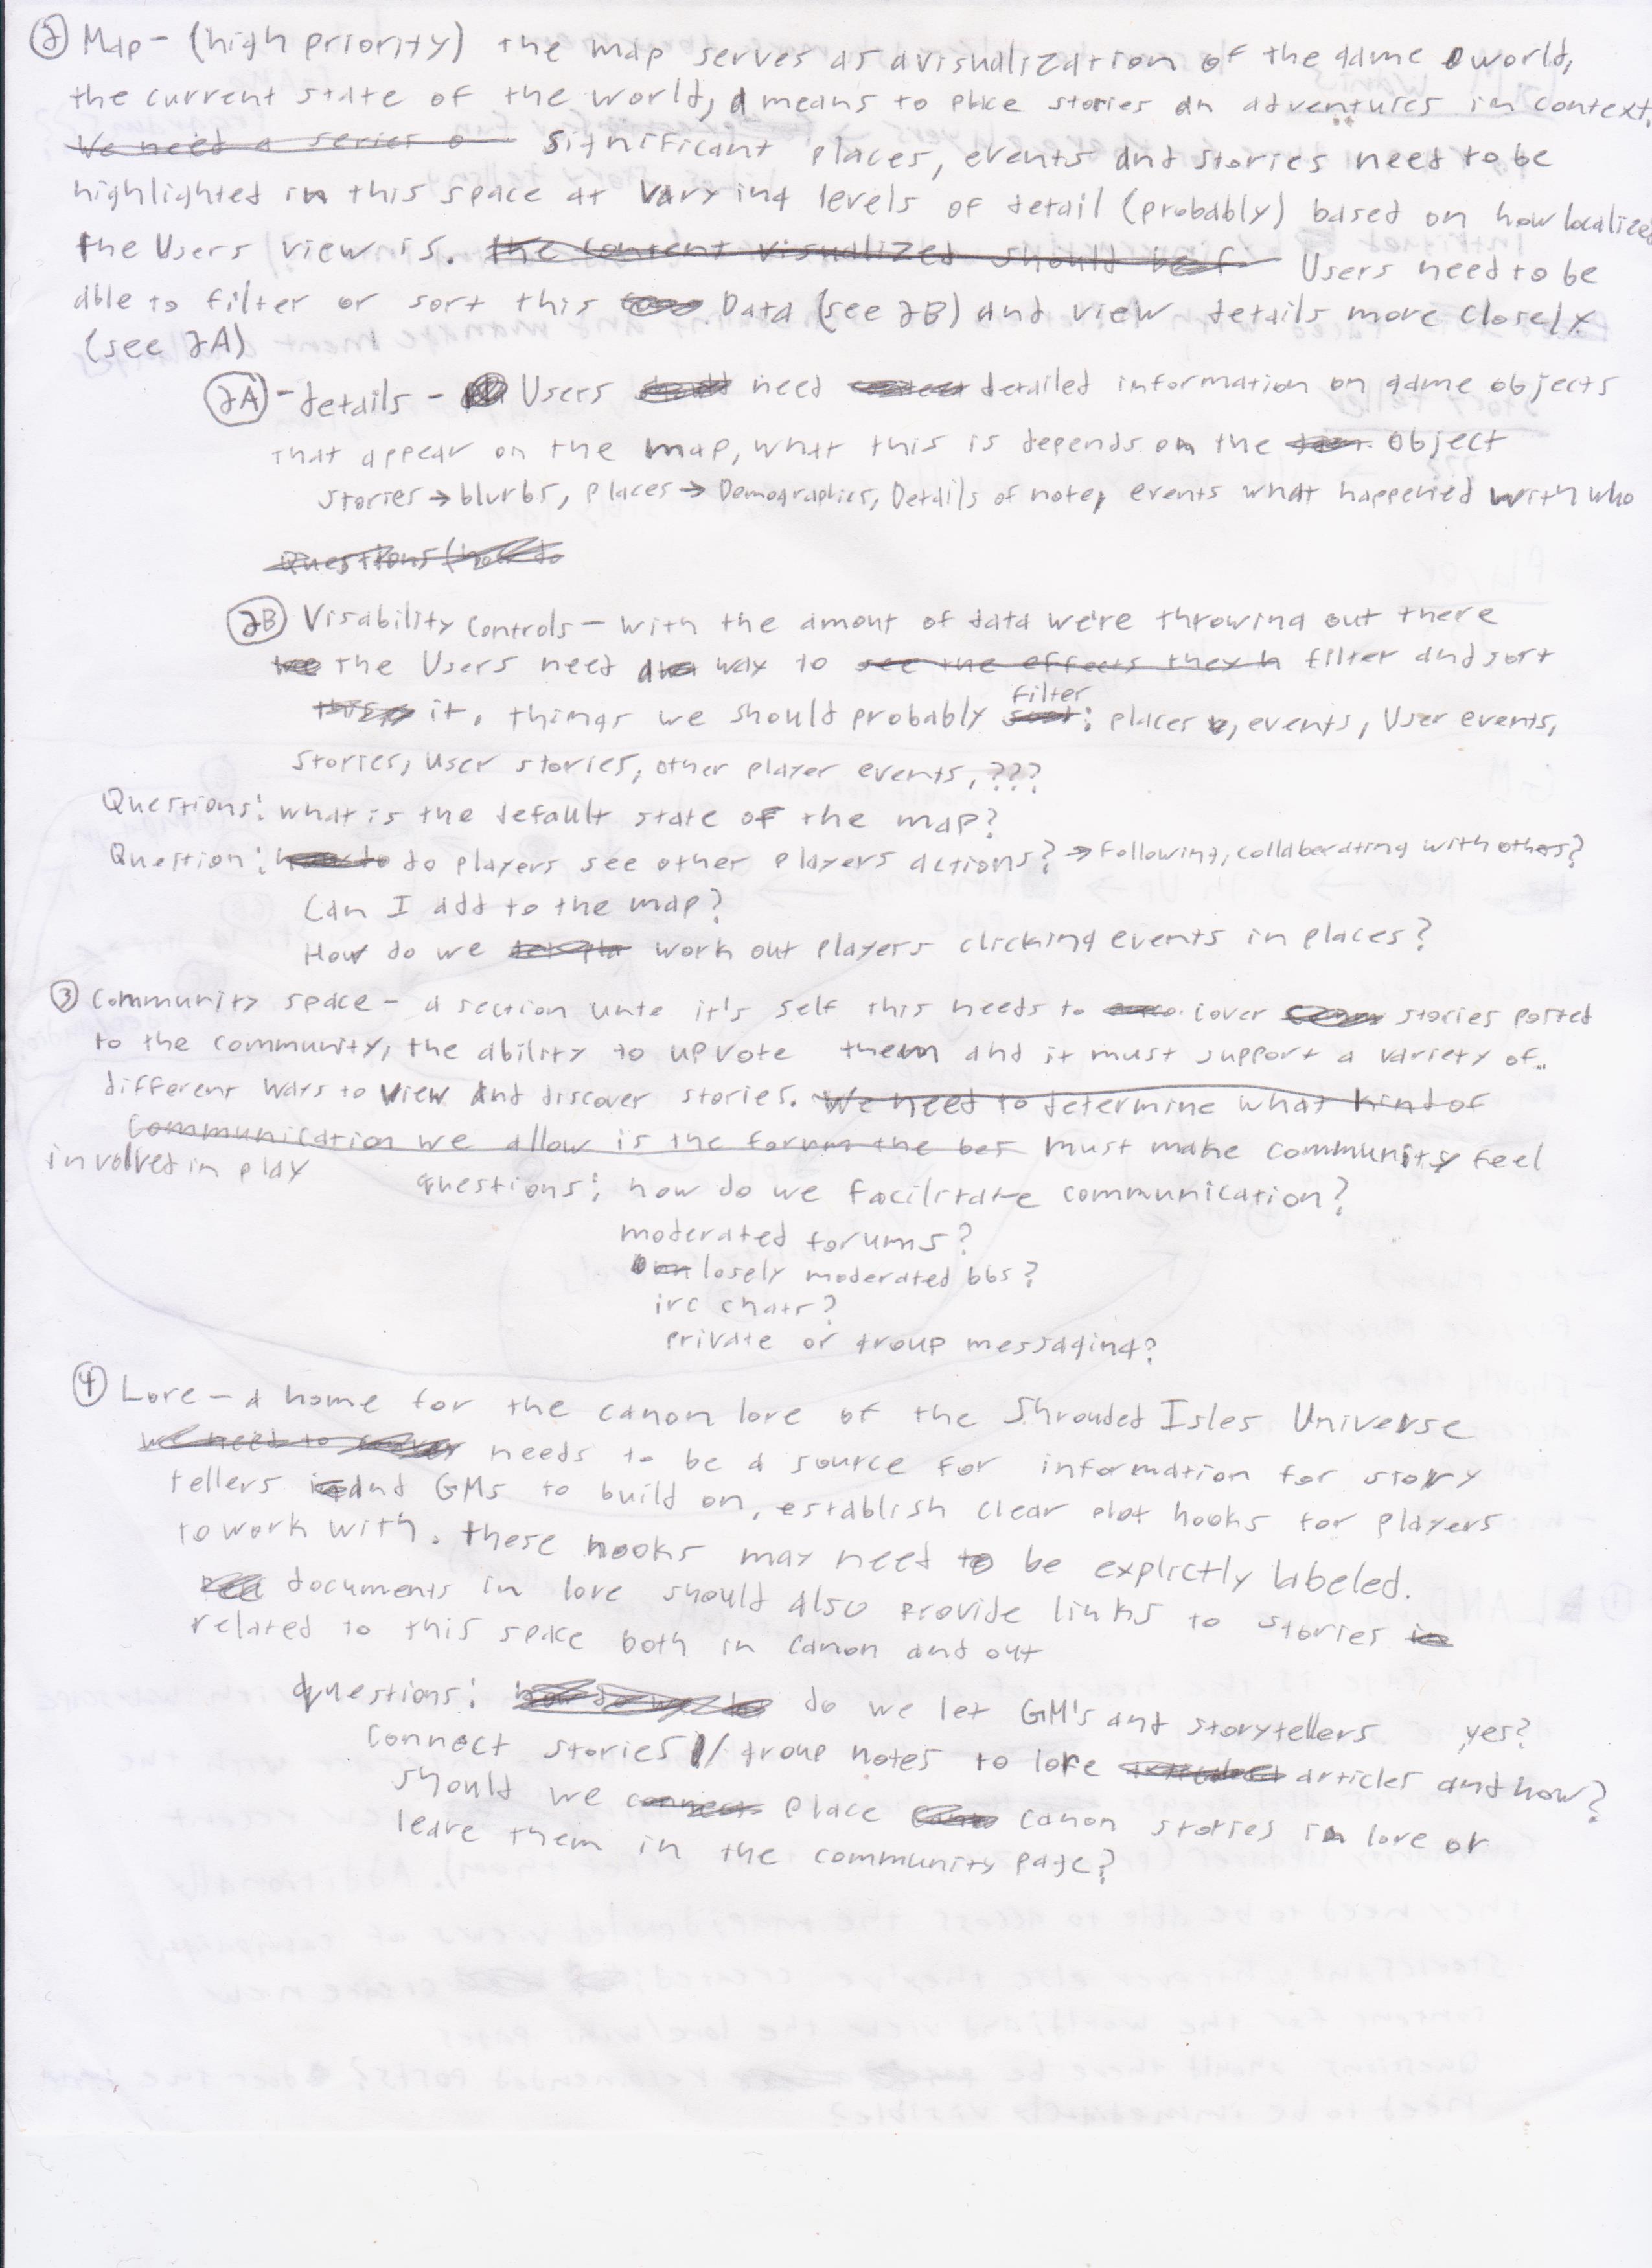 ② Map - (high priority) the map serves as a visualization of the game world,
the current state of the world, a means to place stories an adventures in context.
We need a series o significant places, events and stories need to be
highlighted in this space at varying levels of detail (probably) based on how localized
the Users view is. the content visualized should be f Users need to be
able to filter or sort this Data (see 2B) and view details more closely
(see 2A)
2A - details - Users need detailed information on game objects
that appear on the map, what this is depends on the object
stories → blurbs, places → Demographics, Details of note, events what happened with who
Questions (how do
2B Visability controls - with the amont of data we're throwing out there
the Users need a way to see the effects they h filter and sort
filter
it. things we should probably sort: places, events, User events,
stories, user stories, other player events, ???
Questions: what is the default state of the map?
Question: do players see other players actions? → following, collaborating with others?
Can I add to the map?
How do we work out players clicking events in places?
③ Community space - a section unto it's self this needs to cover stories posted
to the community, the ability to upvote them and it must support a variety of
different ways to view and discover stories. We need to determine what kind of
communication we allow is the forum the bes must make community feel
involved in play
questions: how do we facilitate communication?
moderated forums?
losely moderated bbs?
irc chats?
private or group messaging?
④ Lore - a home for the canon lore of the Shrouded Isles Universe
we need to needs to be a source for information for story
tellers and GMs to build on, establish clear plot hooks for players
to work with. these hooks may need to be explictly labeled.
documents in lore should also provide links to stories in
related to this space both in canon and out
questions: do we let GM's and storytellers yes?
connect stories // group notes to lore articles and how?
should we connect place canon stories in lore or
leave them in the community page?